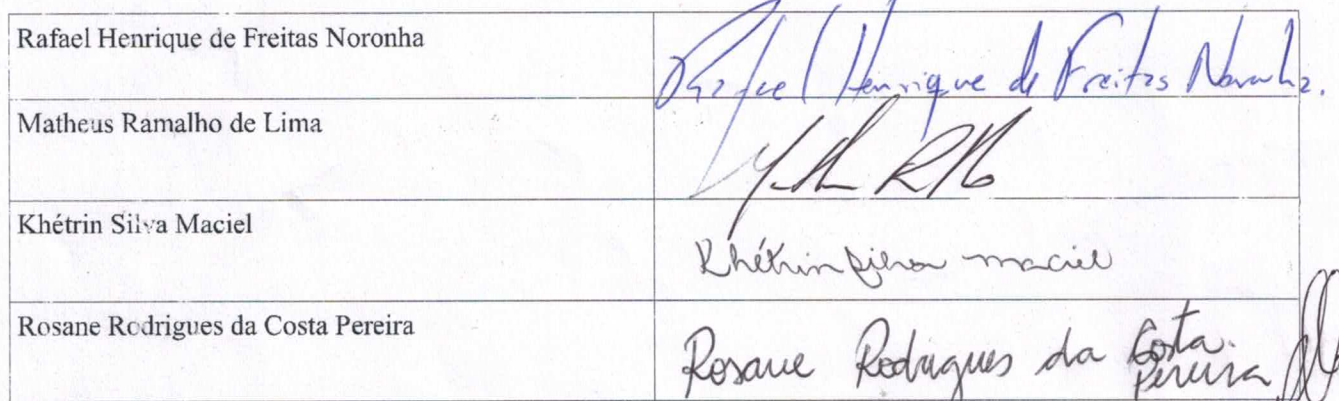 Rafael Henrique de Freitas Noronha
Rafael Henrique de Freitas Noronha.
Matheus Ramalho de Lima
Khétrin Silva Maciel
Khétrin Silva maciel
Rosane Rodrigues da Costa Pereira
Rosane Rodrigues da Costa.
Pereira